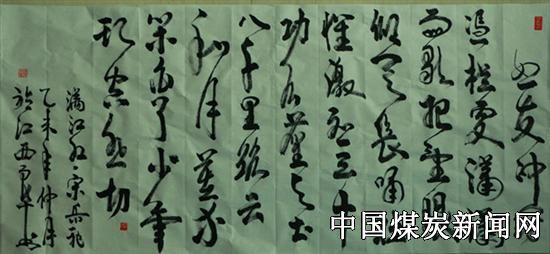 怒发冲冠
凭栏处潇潇
雨歇抬望眼
仰天长啸壮
怀激烈三十
功名尘与土
八千里路云
和月莫等
闲白了少年
头空悲切
满江红宋岳飞
乙未年仲月
於江西南昌
中国煤炭新闻网